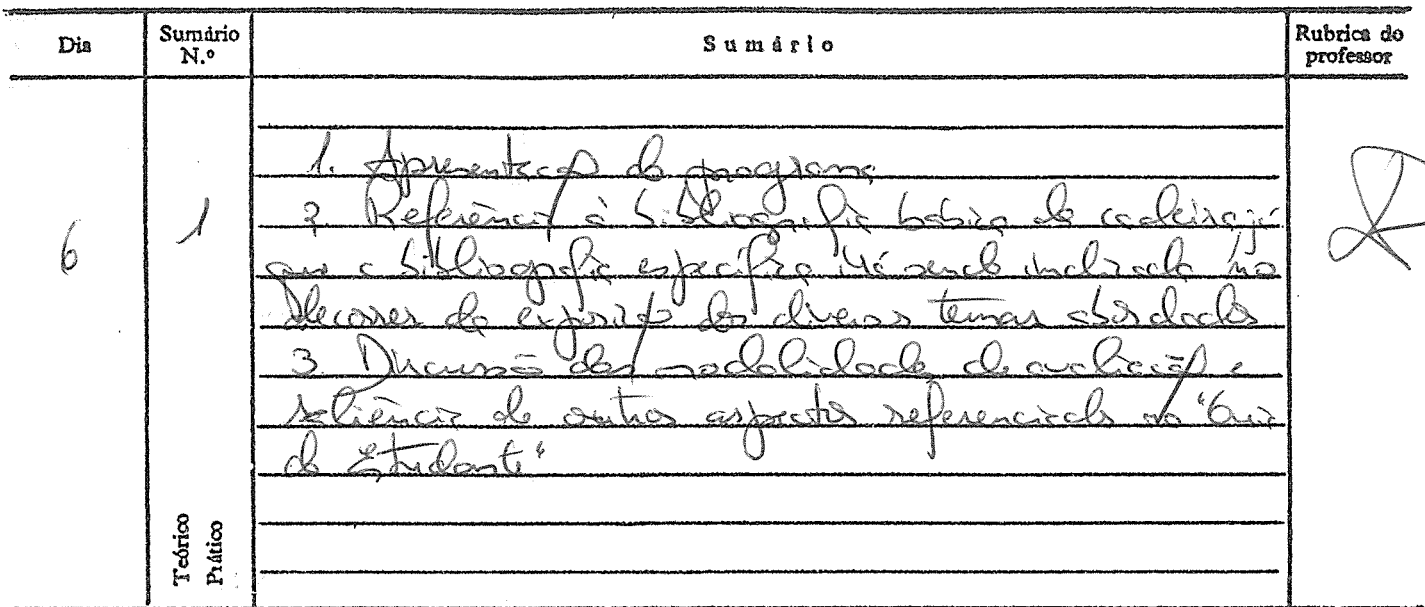 Dia
Sumário N.º
Sumário
Rubrica do professor
6
1
1. Apresentação do programa
2. Referência à bibliografia básica da cadeira já
que a bibliografia específica irá sendo indicada no
decorrer da exposição dos diversos temas abordados
3. Discussão das modalidades de avaliação e
saliência de outros aspectos referenciados no "Guia
do Estudante"
Teórico
Prático